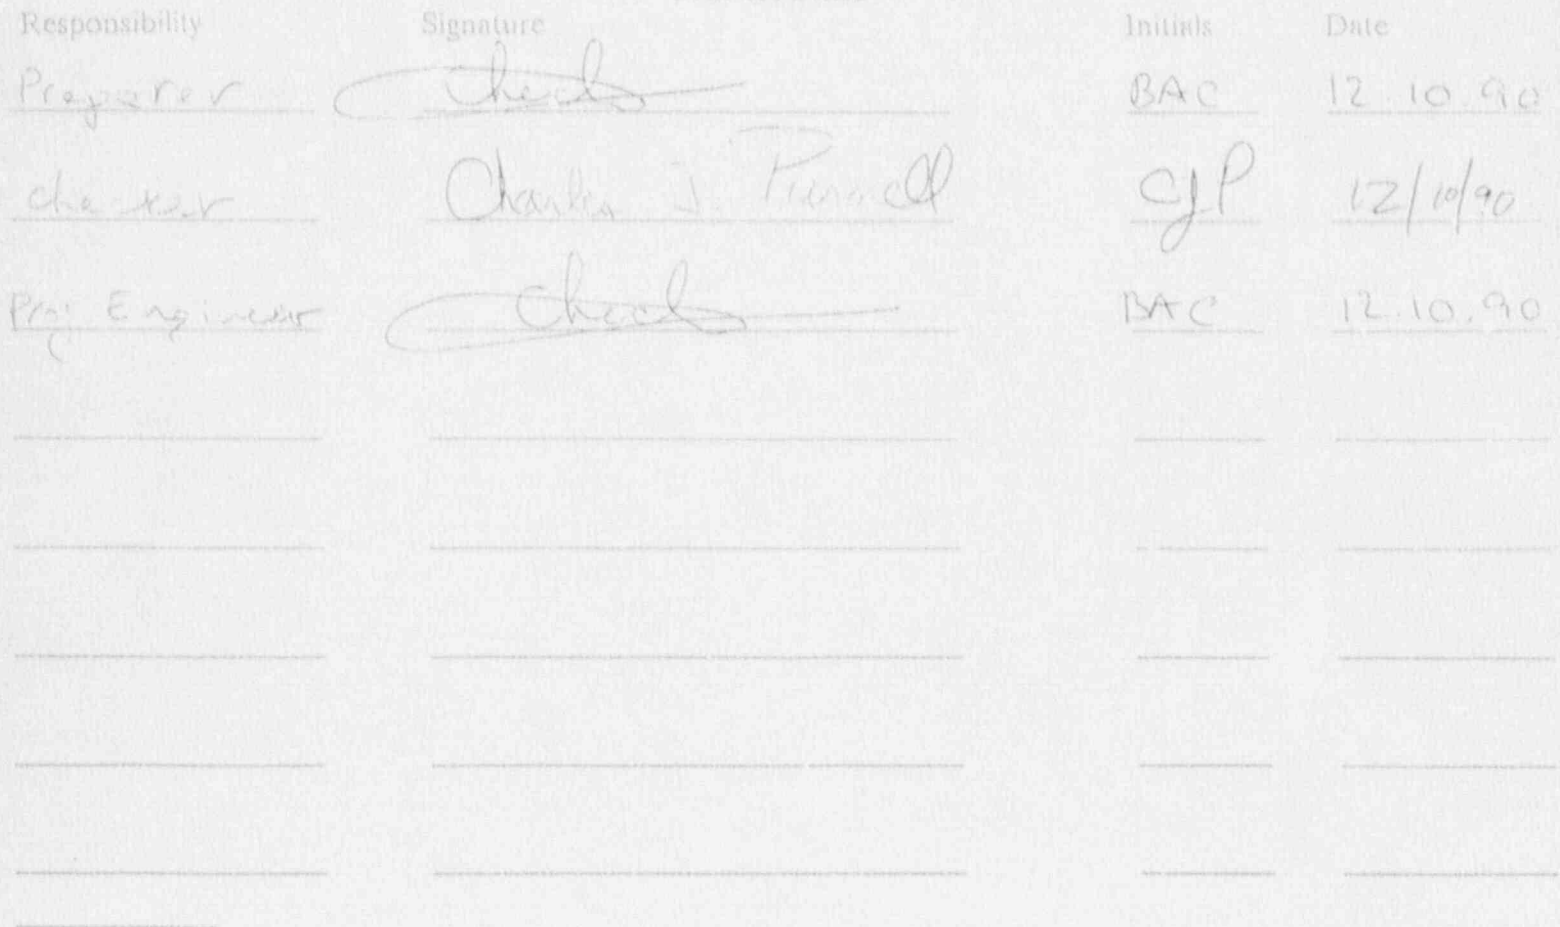 Responsibility Signature Initials Date
Preparer BAC 12.10.90
checker Charles J. CJP 12/10/90
Proj Engineer BAC 12.10.90